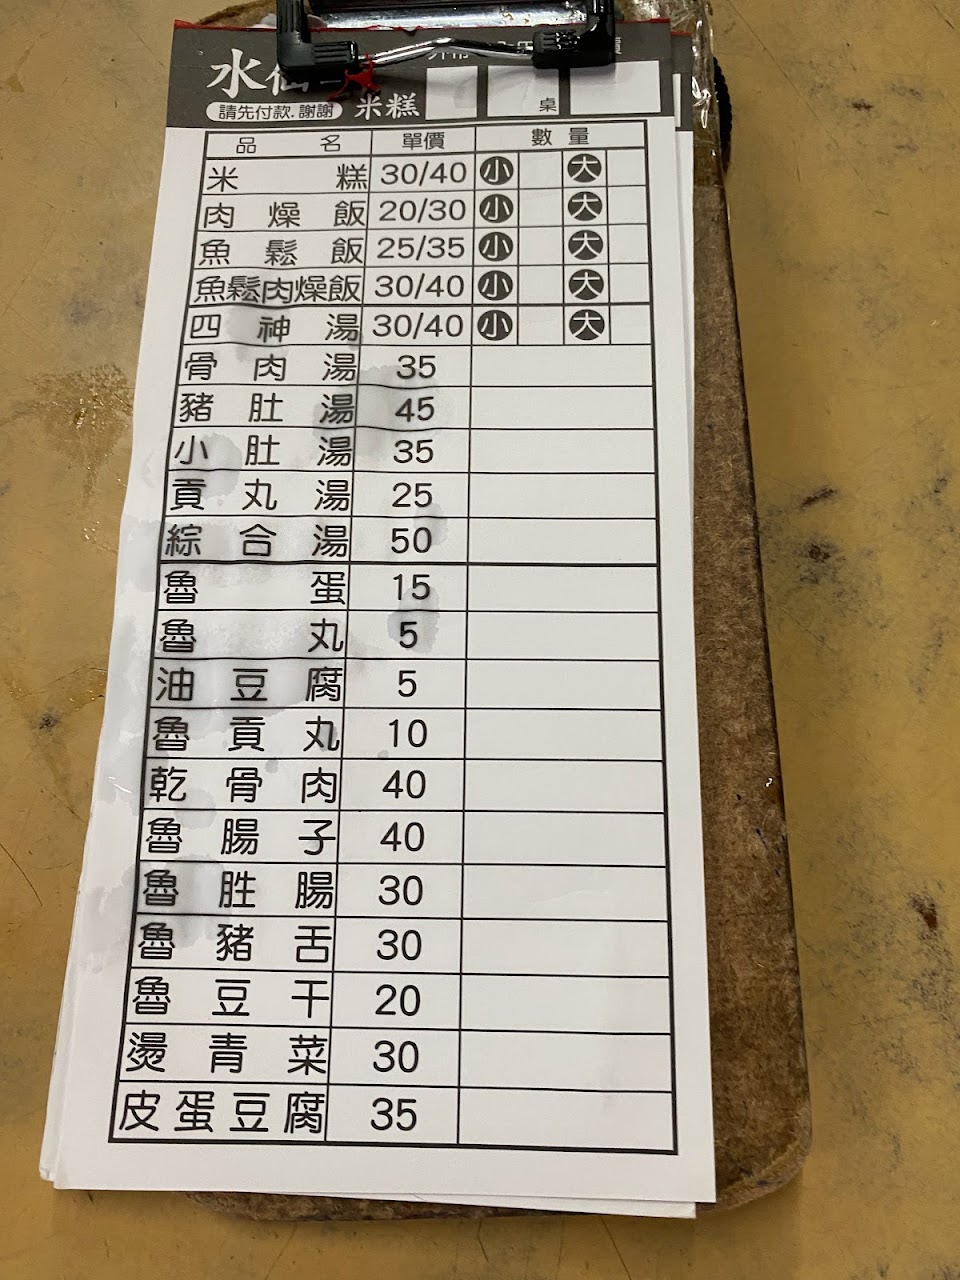 水仙
請先付款.謝謝
米糕
桌
品 名 單價 數 量
米 糕 30/40 小 大
肉 燥 飯 20/30 小 大
魚 鬆 飯 25/35 小 大
魚鬆肉燥飯 30/40 小 大
四 神 湯 30/40 小 大
骨 肉 湯 35
豬 肚 湯 45
小 肚 湯 35
貢 丸 湯 25
綜 合 湯 50
魯 蛋 15
魯 丸 5
油 豆 腐 5
魯 貢 丸 10
乾 骨 肉 40
魯 腸 子 40
魯 胜 腸 30
魯 豬 舌 30
魯 豆 干 20
燙 青 菜 30
皮 蛋 豆 腐 35